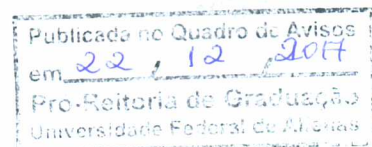 Publicada no Quadro de Avisos
em 22 / 12 / 2017
Pro-Reitoria de Graduação
Universidade Federal de